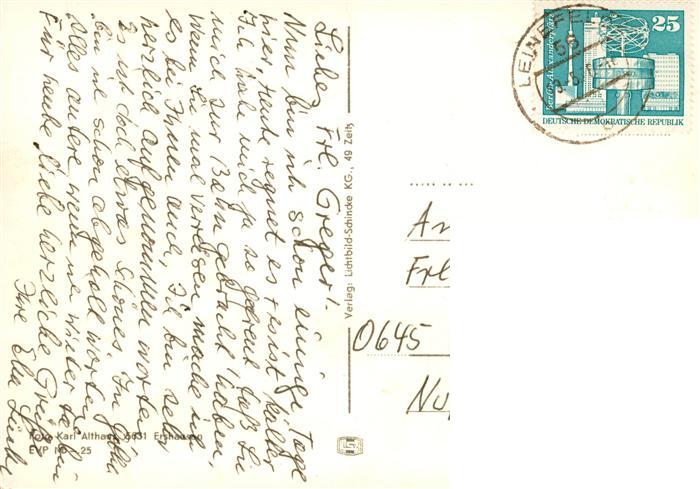 Liebes Frl. Greger!
Nun bin ich schon einige Tage
hier, heute regnet es + es ist kälter
Ich habe mich ja so gefreut daß Sie
mich zur Bahn gebracht haben,
Wenn Sie mal verreisen mache ich
es bei Ihnen auch, Ich bin sehr
herzlich aufgenommen worden
Es ist doch etwas Schönes. In
bin ich schon abgeholt worden
Alles andere wenn ich wieder da bin
Für heute liebe herzliche Grüße
Ihre Elsa
Verlag: Lichtbild-Schincke KG., 49 Zeitz
Foto: Karl Althaus, 5631 Ershausen
EVP MDN -.25
LEINEFE
58
25
Berlin-Alexanderplatz
DEUTSCHE DEMOKRATISCHE REPUBLIK
An
Frl
0645
Nu